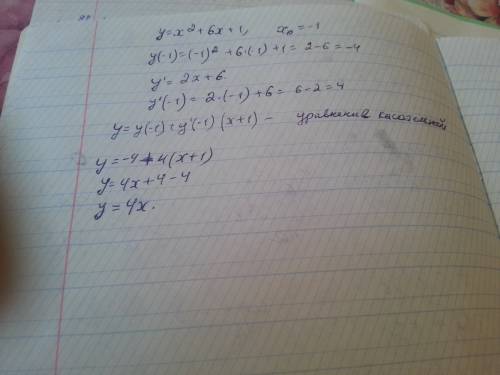 y=x²+6x+1, x₀=-1
y(-1)=(-1)²+6·(-1)+1=2-6=-4
y'=2x+6
y'(-1)=2·(-1)+6=6-2=4
y=y(-1)+y'(-1)(x+1)- уравнение касательной
y=-4+4(x+1)
y=4x+4-4
y=4x.